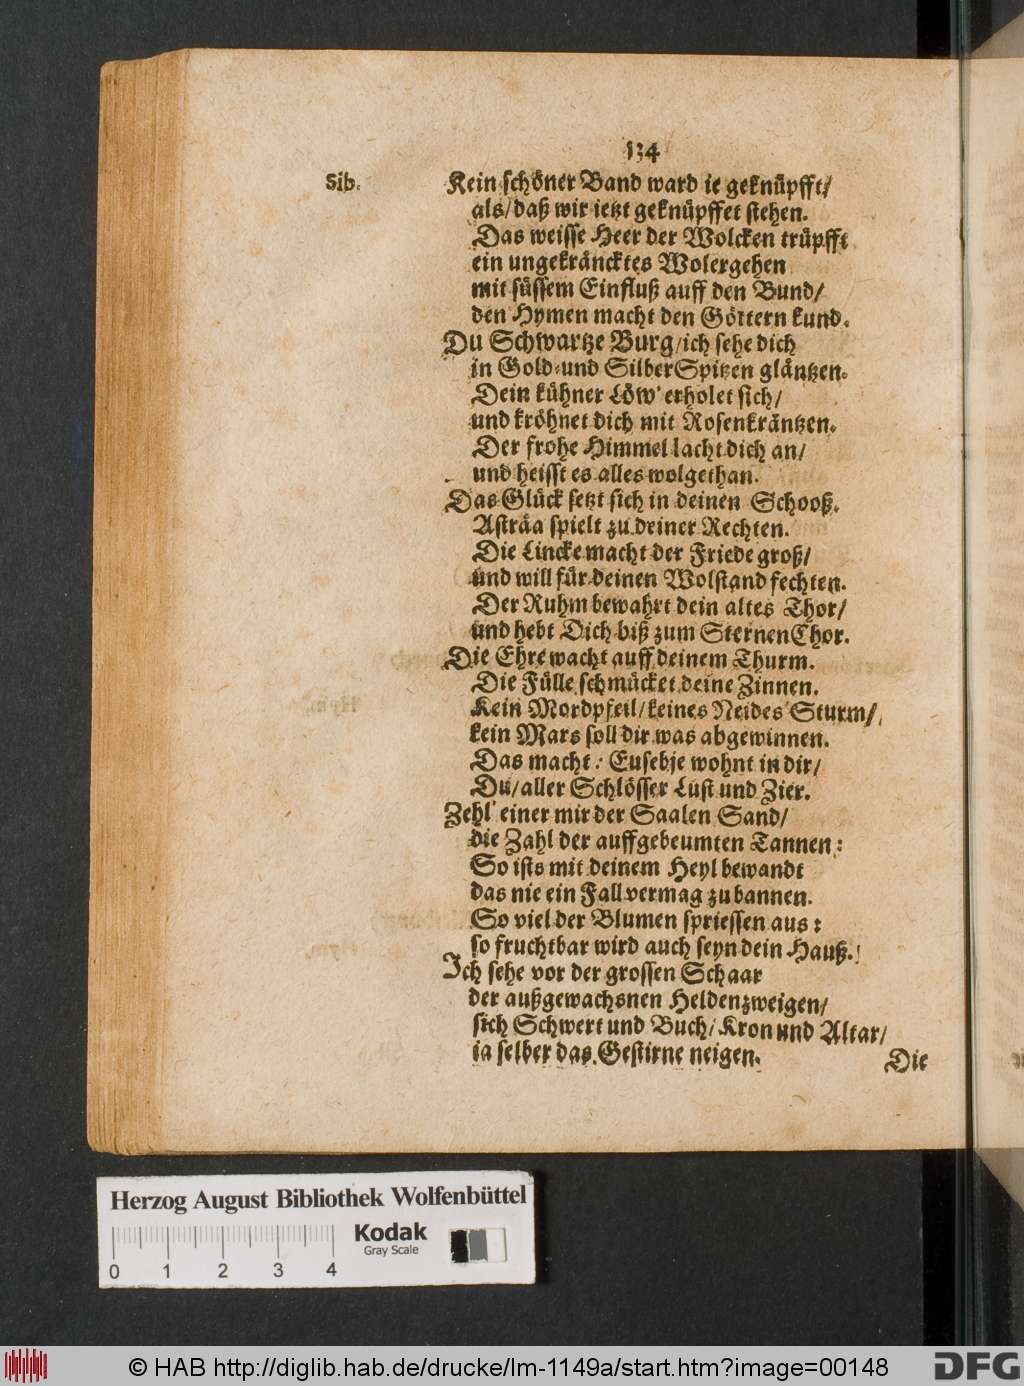 134
Sib. Kein schöner Band ward ie geknüpfft/
als/daß wir ietzt geknüpffet stehen.
Das weisse Heer der Wolcken trüpfft
ein ungekräncktes Wolergehen
mit süssem Einfluß auff den Bund/
den Hymen macht den Göttern kund.
Du Schwartze Burg/ich sehe dich
in Gold-und SilberSpitzen gläntzen.
Dein kühner Löw' erholet sich/
und kröhnet dich mit Rosenkräntzen.
Der frohe Himmel lacht dich an/
und heisst es alles wolgethan.
Das Glück setzt sich in deinen Schooß.
Asträa spielt zu deiner Rechten.
Die Lincke macht der Friede groß/
und will für deinen Wolstand fechten.
Der Ruhm bewahrt dein altes Thor/
und hebt Dich biß zum SternenChor.
Die Ehre wacht auff deinem Thurm.
Die Fülle schmücket deine Zinnen.
Kein Mordpfeil/keines Neides Sturm/
kein Mars soll dir was abgewinnen.
Das macht: Eusebie wohnt in dir/
Du/aller Schlösser Lust und Zier.
Zehl' einer mir der Saalen Sand/
die Zahl der auffgebeumten Tannen:
So ists mit deinem Heyl bewandt
das nie ein Fall vermag zu bannen.
So viel der Blumen spriessen aus:
so fruchtbar wird auch seyn dein Hauß.
Ich sehe vor der grossen Schaar
der außgewachsnen Heldenzweigen/
sich Schwert und Buch/Kron und Altar/
ia selber das Gestirne neigen.
Die
Herzog August Bibliothek Wolfenbüttel
Kodak
Gray Scale
0 1 2 3 4
© HAB http://diglib.hab.de/drucke/lm-1149a/start.htm?image=00148
DFG